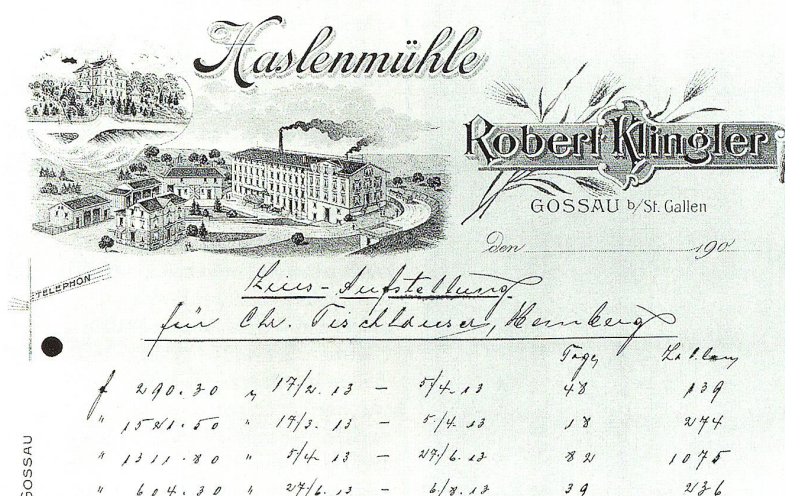 Haslenmühle
Robert Klingler
GOSSAU b/St. Gallen
Den 190
TELEPHON
Zins-Aufstellung
für Chr. Tischhauser, Hemberg
Tage
f 290.30 " 17/2. 13 – 5/4. 13 48 139
" 1521.50 " 17/3. 13 – 5/4. 13 18 274
" 1311.80 " 5/4 13 – 27/6. 13 82 1075
" 604.30 " 27/6. 13 – 6/8. 13 39 236
GOSSAU